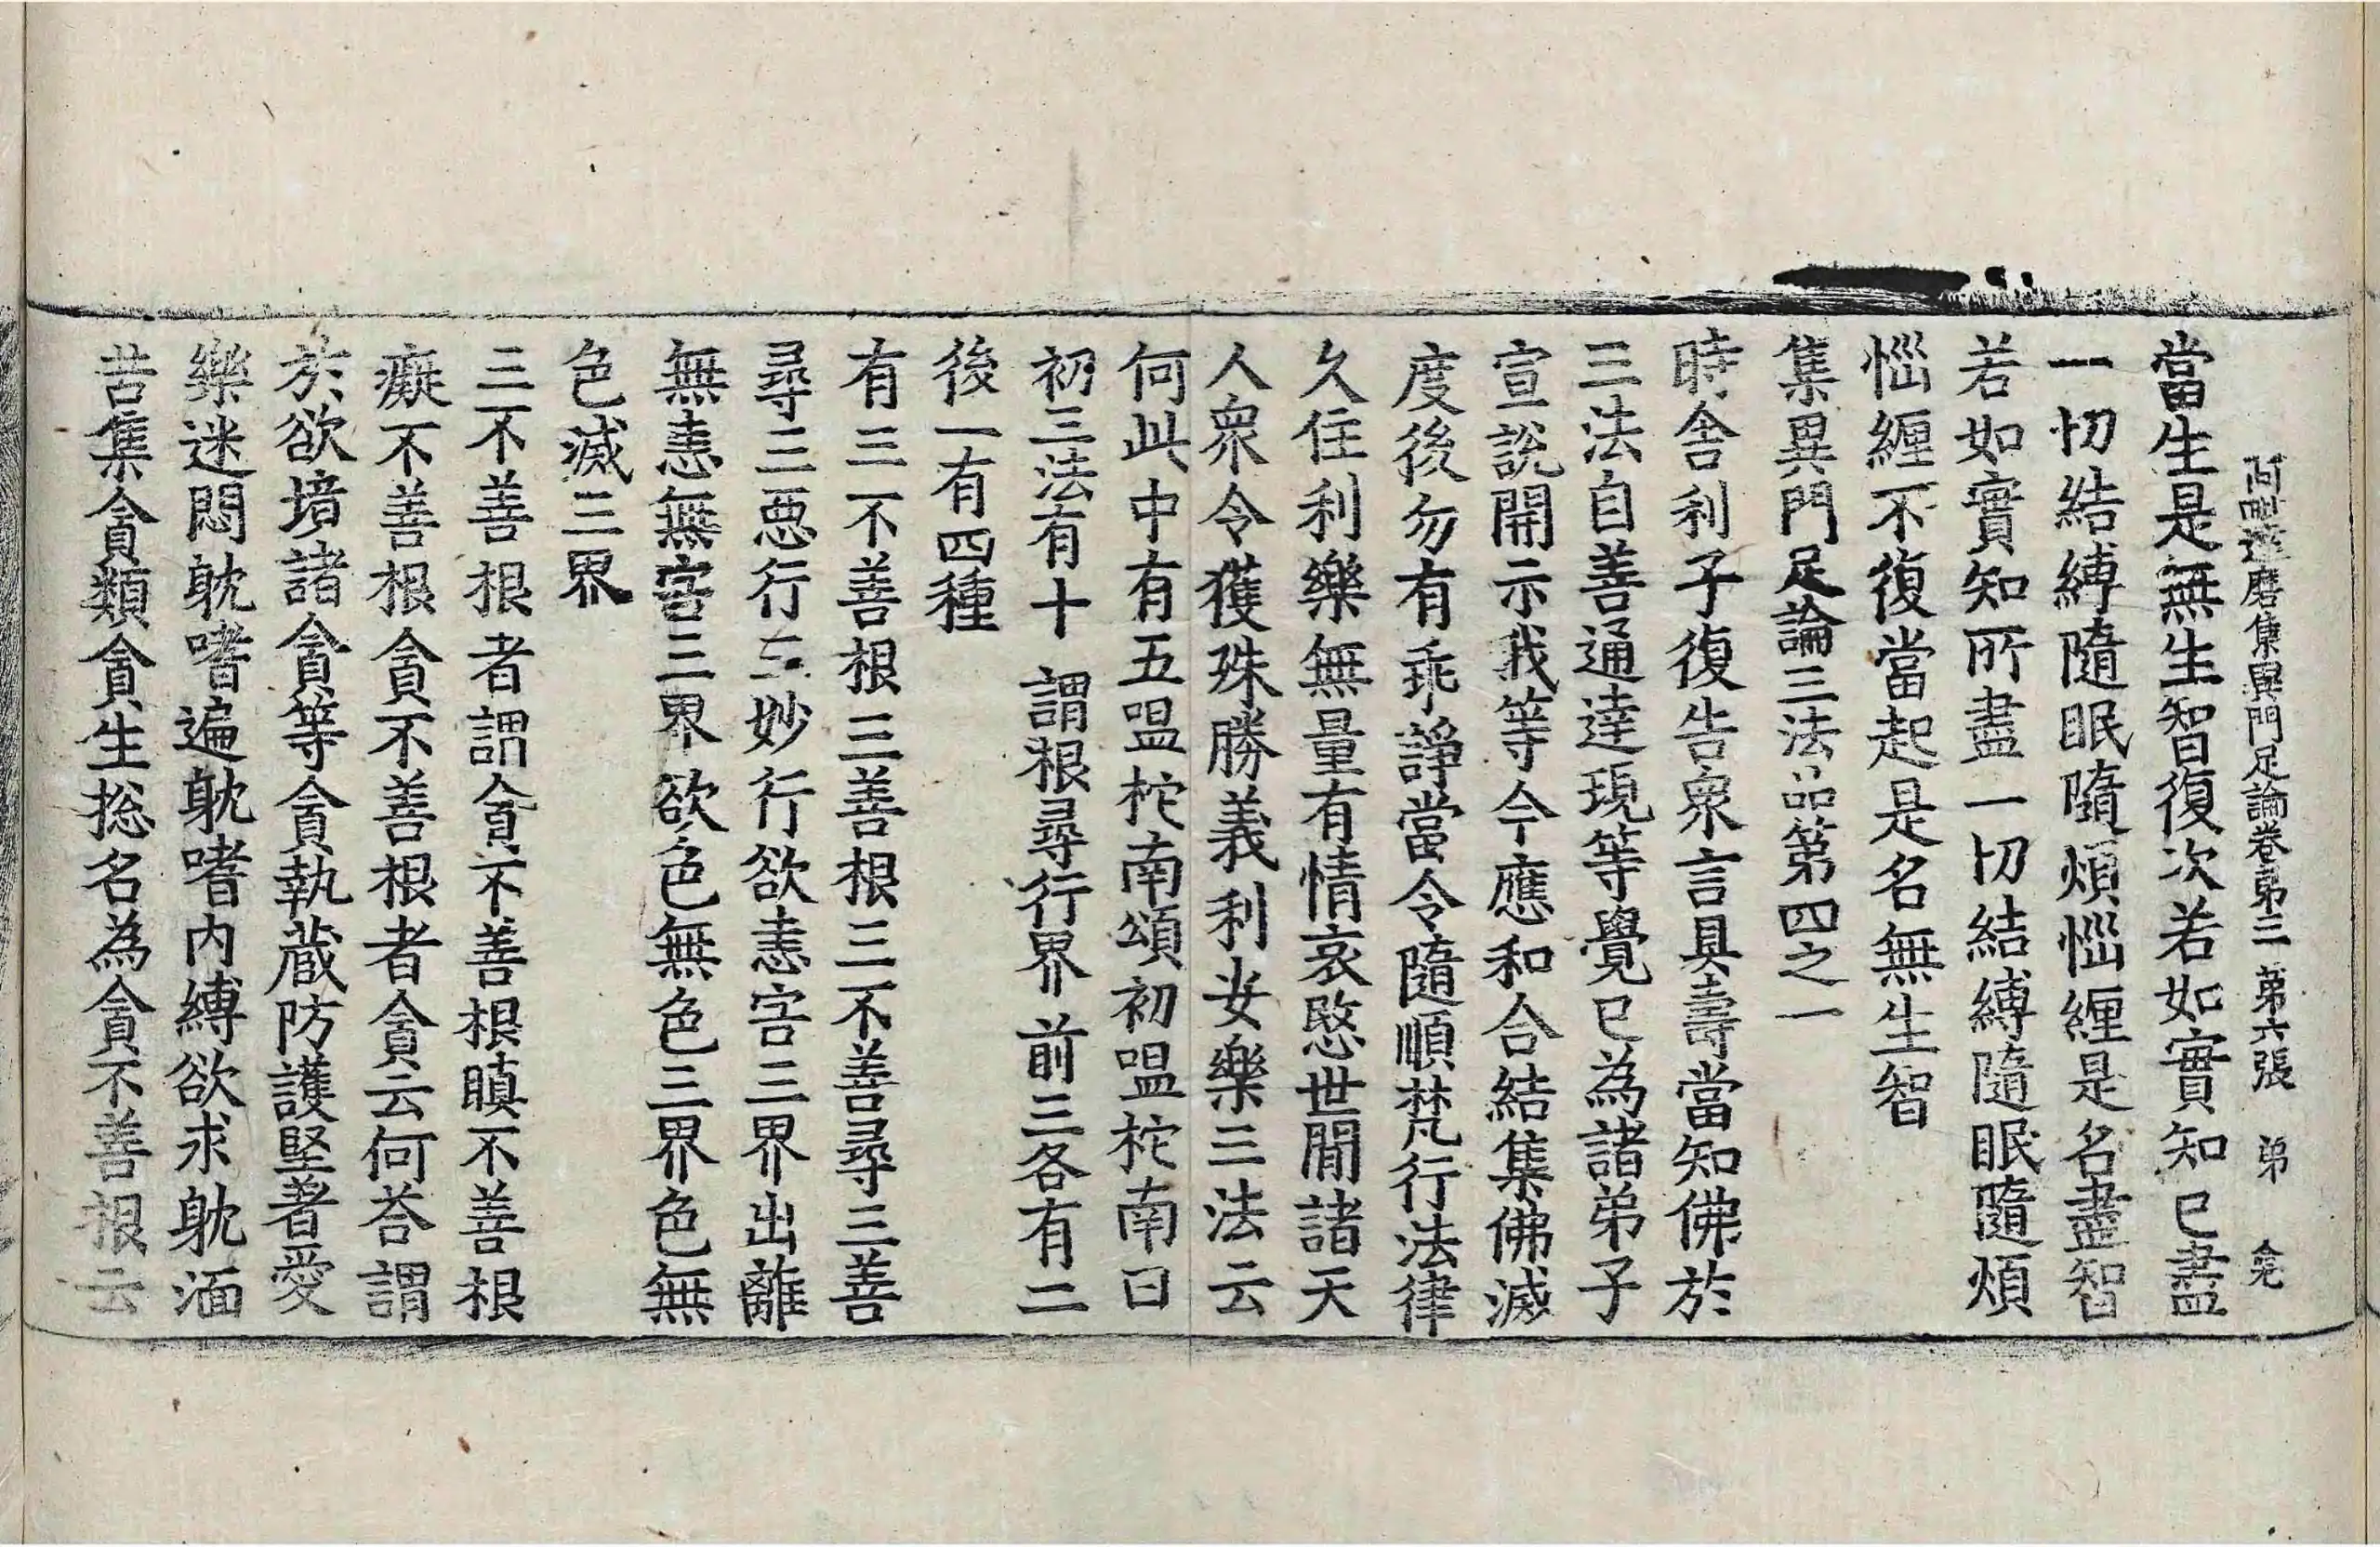 阿毗達磨集異門足論卷第三 第六張 弟 兊
當生是無生智復次若如實知已盡
一切結縛隨眠隨煩惱纏是名盡智
若如實知所盡一切結縛隨眠隨煩
惱纏不復當起是名無生智
集異門足論三法品第四之一
時舍利子復告衆言具壽當知佛於
三法自善通達現等覺已為諸弟子
宣說開示我等今應和合結集佛滅
度後勿有乖諍當令隨順梵行法律
久住利樂無量有情哀愍世間諸天
人衆令獲殊勝義利安樂三法云
何此中有五嗢柁南頌初嗢柁南曰
初三法有十 謂根尋行界 前三各有二
後一有四種
有三不善根三善根三不善尋三善
尋三惡行三妙行欲恚害三界出離
無恚無害三界欲色無色三界色無
色滅三界
三不善根者謂貪不善根瞋不善根
癡不善根貪不善根者貪云何荅謂
於欲境諸貪等貪執蔵防護堅著愛
樂迷悶躭嗜遍躭嗜内縛欲求躭湎
苦集貪類貪生捴名為貪不善根云